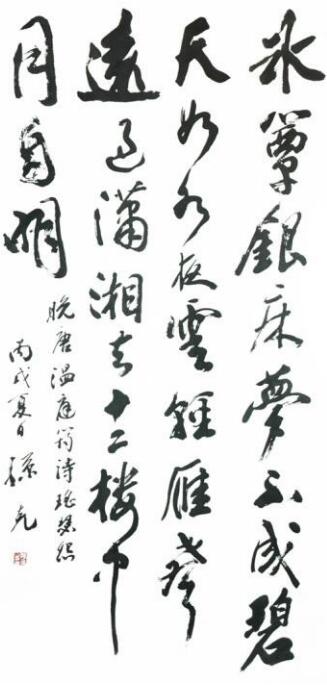 冰簟銀床夢不成碧
天如水夜雲輕雁聲
遠過瀟湘去十二楼中
月自明
晚唐温庭筠詩瑶瑟怨
丙戌夏日